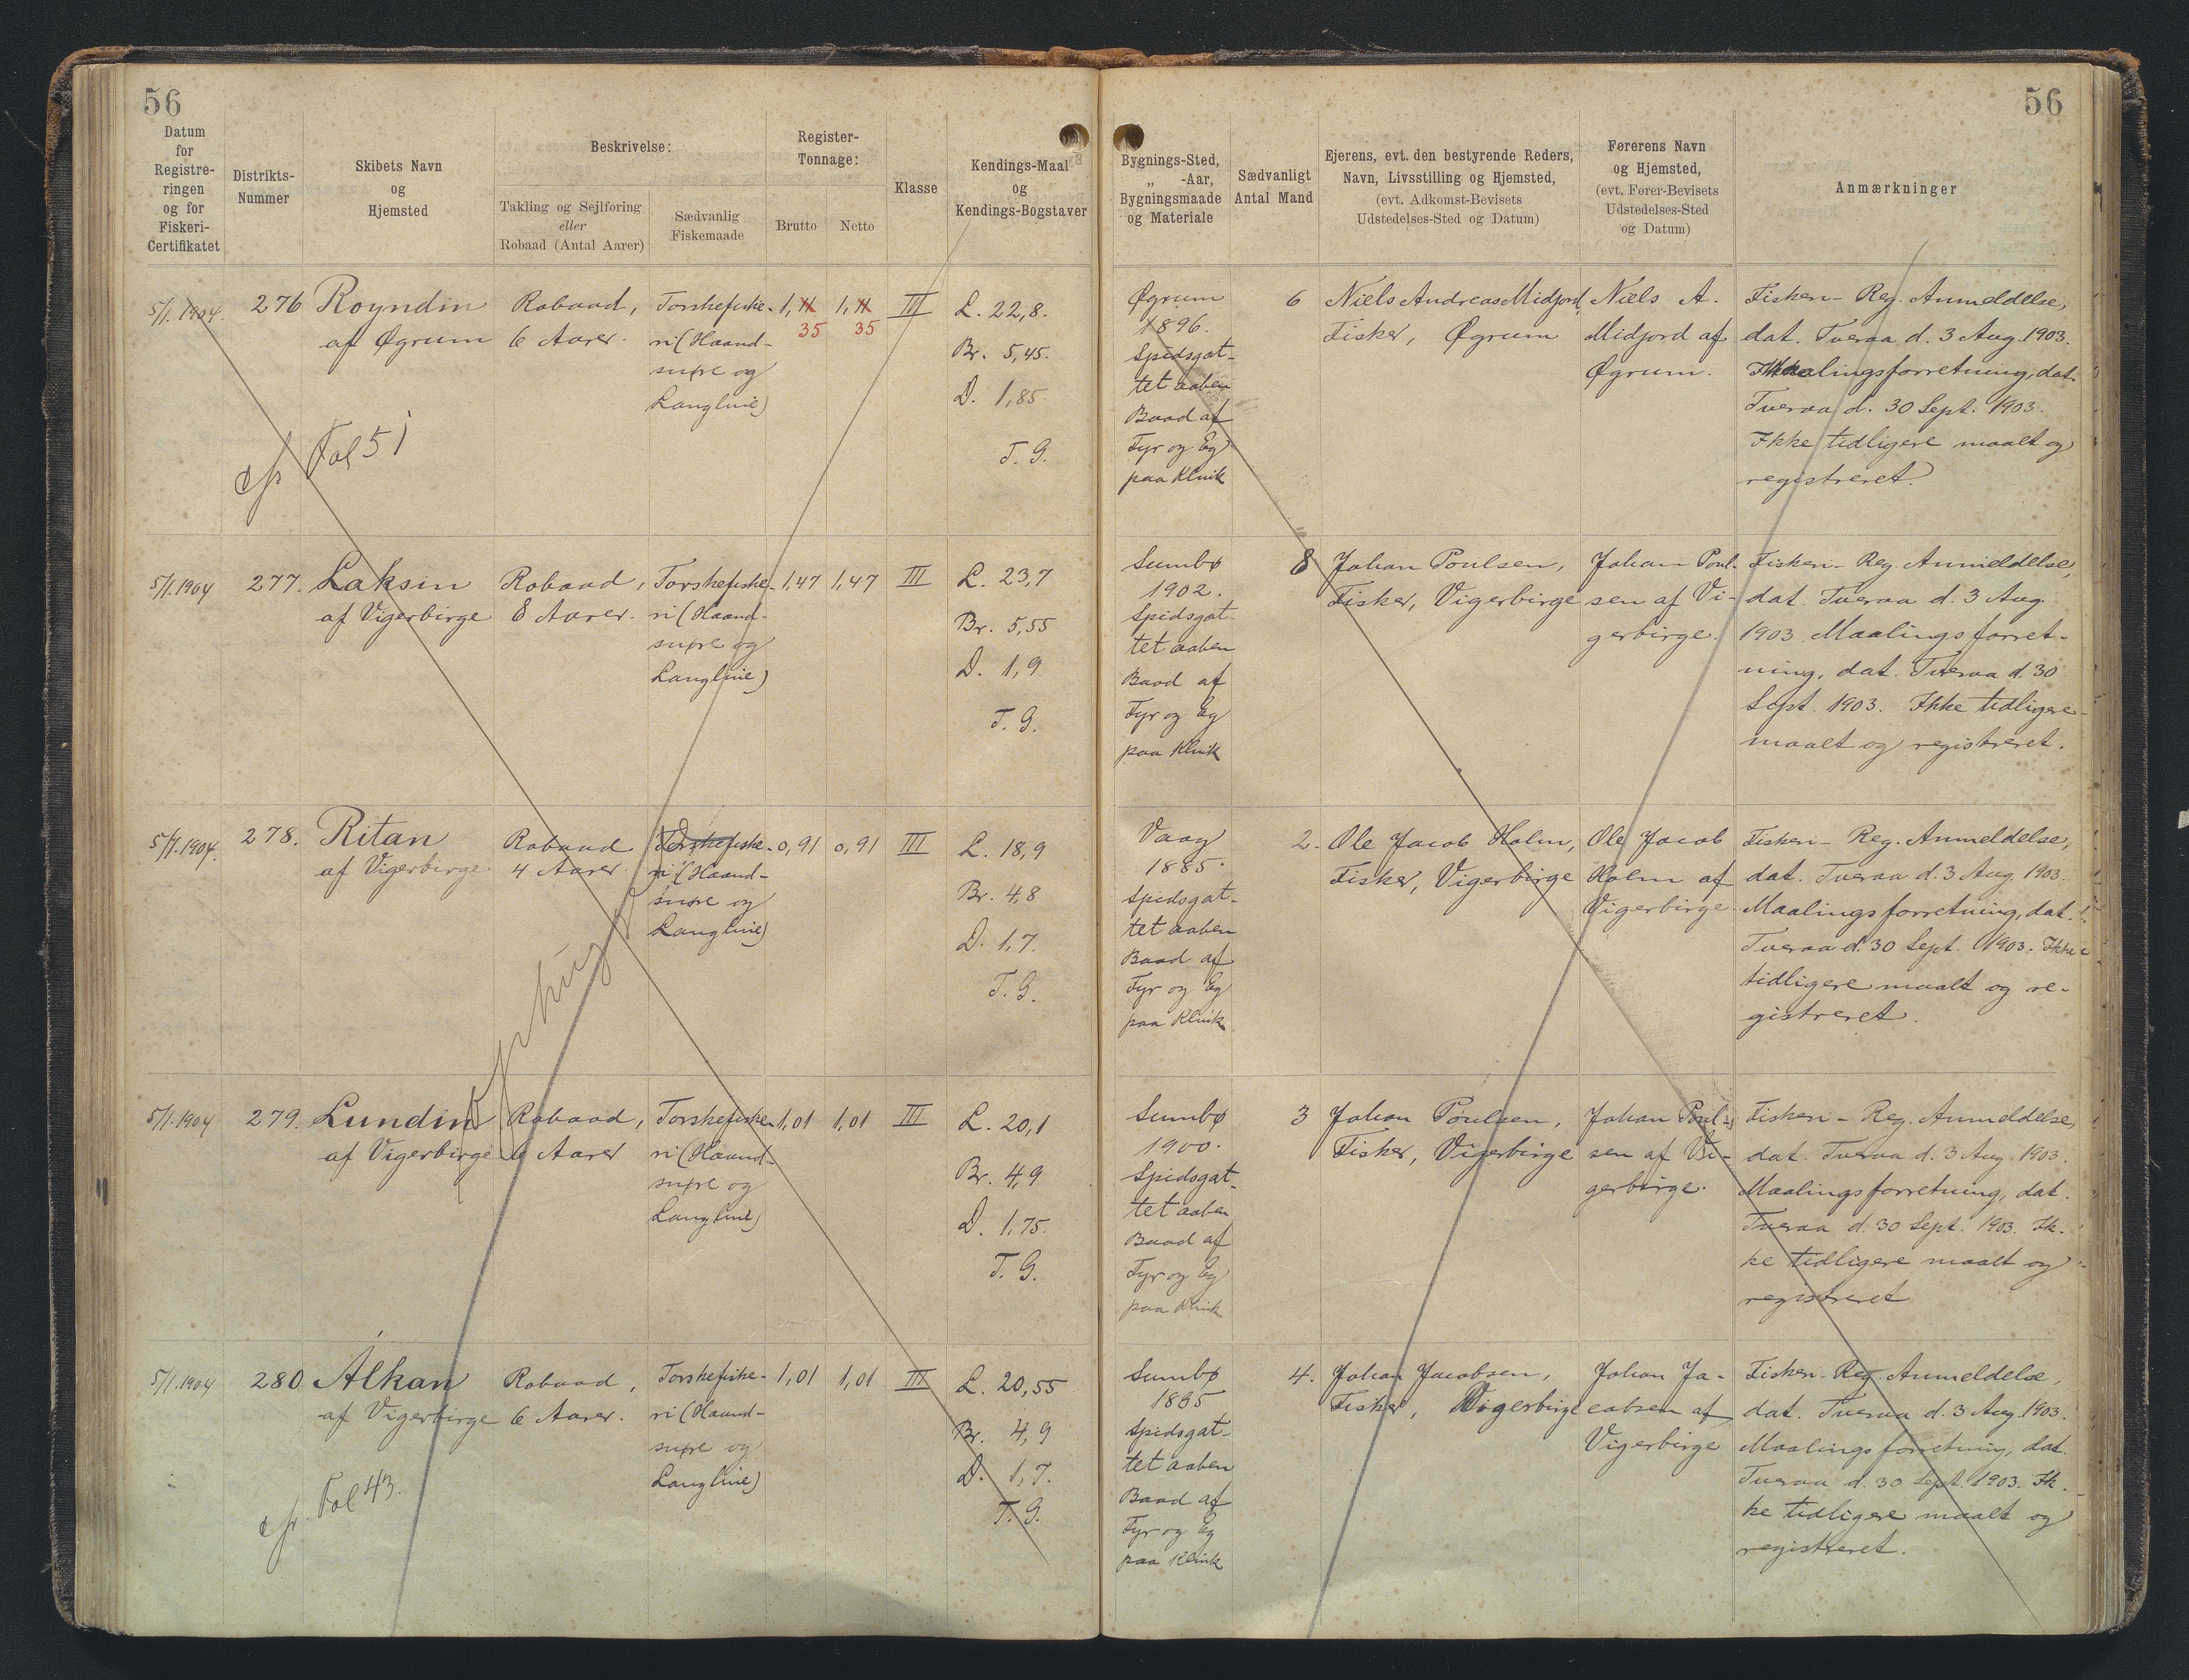 56
56
Datum
for
Registre-
ringen
og for
Fiskeri-
Certifikatet
Distrikts-
Nummer
Skibets Navn
og
Hjemsted
Beskrivelse:
Takling og Sejlføring
eller
Robaad (Antal Aarer)
Sædvanlig
Fiskemaade
Register-
Tonnage:
Brutto
Netto
Klasse
Kendings-Maal
og
Kendings-Bogstaver
Bygnings-Sted,
„ -Aar,
Bygningsmaade
og Materiale
Sædvanligt
Antal Mand
Ejerens, evt. den bestyrende Reders,
Navn, Livsstilling og Hjemsted,
(evt. Adkomst-Bevisets
Udstedelses-Sted og Datum)
Førerens Navn
og Hjemsted,
(evt. Fører-Bevisets
Udstedelses-Sted
og Datum)
Anmærkninger
5/1. 1904.
276
Royndin
af Øgrum
Robaad,
6 Aarer.
Torskefiske-
ri (Haand-
snøre og
Langline)
1,11
35
1,11
35
III
L. 22,8.
Br. 5,45.
D. 1,85.
T. G.
cfr Fol 51
Øgrum
1896.
Spidsgat-
tet aaben
Baad af
Fyr og Eg
paa Klink
6
Niels Andreas Midjord,
Fisker, Øgrum
Niels A.
Midjord af
Øgrum.
Fiskeri-Reg. Anmeldelse,
dat. Tveraa d. 3 Aug. 1903.
Maalingsforretning, dat.
Tveraa d. 30 Sept. 1903.
Ikke tidligere maalt og
registreret.
5/1. 1904
277.
Laksin
af Vigerbirge
Robaad,
8 Aarer.
Torskefiske-
ri (Haand-
snøre og
Langline)
1,47
1,47
III
L. 23,7
Br. 5,55
D. 1,9
T. G.
Sumbø
1902.
Spidsgat-
tet aaben
Baad af
Fyr og Eg
paa Klink
8
Johan Poulsen,
Fisker, Vigerbirge
Johan Poul-
sen af Vi-
gerbirge.
Fiskeri-Reg Anmeldelse,
dat. Tveraa d. 3 Aug.
1903. Maalingsforret-
ning, dat. Tveraa d. 30
Sept. 1903. Ikke tidligere
maalt og registreret.
5/1. 1904.
278.
Ritan
af Vigerbirge
Robaad
4 Aarer.
Torskefiske-
ri (Haand-
snøre og
Langline)
0,91
0,91
III
L. 18,9
Br. 4,8
D. 1,7.
T. G.
Vaag
1885.
Spidsgat-
tet aaben
Baad af
Fyr og Eg
paa Klink
2.
Ole Jacob Holm,
Fisker, Vigerbirge
Ole Jacob
Holm af
Vigerbirge.
Fiskeri-Reg. Anmeldelse,
dat. Tveraa d. 3 Aug. 1903.
Maalingsforretning, dat.
Tveraa d. 30 Sept. 1903. Ikke
tidligere maalt og re-
gistreret.
5/1. 1904
279.
Lundin
af Vigerbirge
Robaad,
6 Aarer
Torskefiske-
ri (Haand-
snøre og
Langline)
1,01
1,01
III
L. 20,1
Br. 4,9
D. 1,75.
T. G.
Sumbø
1900.
Spidsgat-
tet aaben
Baad af
Fyr og Eg
paa Klink
3
Johan Poulsen,
Fisker, Vigerbirge
Johan Poul-
sen af Vi-
gerbirge.
Fiskeri-Reg. Anmeldelse,
dat. Tveraa d. 3 Aug. 1903.
Maalingsforretning, dat.
Tveraa d. 30 Sept. 1903. Ik-
ke tidligere maalt og
registreret
5/1. 1904
280
Álkan
af Vigerbirge
Robaad,
6 Aarer.
Torskefiske-
ri (Haand-
snøre og
Langline)
1,01
1,01
III
L. 20,55
Br. 4,9
D. 1,7.
T. G.
cfr. Fol 43.
Sumbø
Spidsgat-
tet aaben
Baad af
Fyr og Eg
paa Klink
4.
Johan Jacobsen,
Fisker, Vigerbirge
Johan Ja-
cobsen af
Vigerbirge
Fiskeri-Reg. Anmeldelse,
dat. Tveraa d. 3 Aug. 1903.
Maalingsforretning, dat.
Tveraa d. 30 Sept. 1903. Ik-
ke tidligere maalt og
registreret.